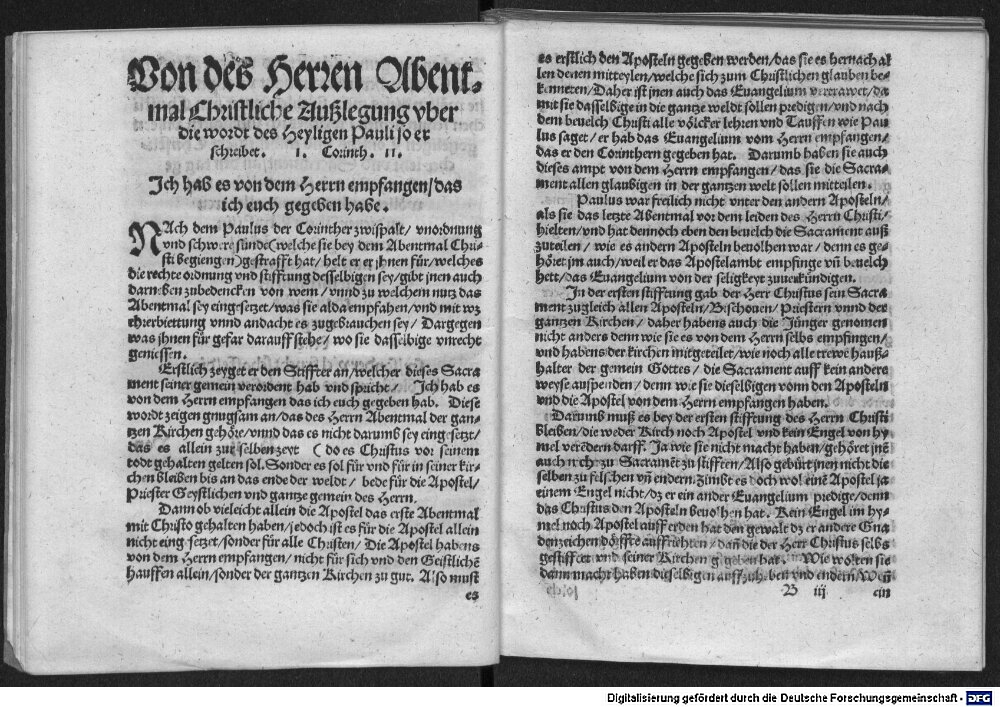 Von des Herren Abent-
mal Christliche Außlegung vber
die wordt des Heyligen Pauli so er
schreibet. 1. Corinth. 11.
Ich hab es von dem Herrn empfangen/das
ich euch gegeben habe.
NAch dem Paulus der Corinther zwispalt/ vnordnung
vnd schwere sünde(welche sie bey dem Abentmal Chri-
sti begiengen)gestrafft hat/ helt er er jhnen für/welches
die rechte ordnung vnd stifftung desselbigen sey/gibt jnen auch
darneben zubedencken von wem/ vnnd zu welchem nutz das
Abentmal sey eingesetzet/was sie alda empfahen/vnd mit wz
ehrerbiettung vnnd andacht es zugebrauchen sey/ Dargegen
was jhnen für gefar darauff stehe/ wo sie dasselbige vnrecht
geniessen.
Erstlich zeyget er den Stiffter an/welcher dieses Sacra
ment seiner gemein verordent hab vnd spricht/ Ich hab es
von dem Herrn empfangen das ich euch gegeben hab. Diese
wordt zeigen gnugsam an/das des Herrn Abentmal der gan-
tzen Kirchen gehöre/vnnd das es nicht darumb sey eingesetzt/
das es allein zur selben zeyt (do es Christus vor seinem
todt gehalten gelten sol. Sonder es sol für vnd für in seiner kir-
chen bleiben bis an das ende der weldt/ bede für die Apostel/
Priester Geystlichen vnd gantze gemein des Herrn.
Dann ob vieleicht allein die Apostel das erste Abentmal
mit Christo gehalten haben/jedoch ist es für die Apostel allein
nicht eingesetzet/sonder für alle Christen/ Die Apostel habens
von dem Herrn empfangen/nicht für sich vnd den Geistlichē
hauffen allein/sonder der gantzen Kirchen zu gut. Also must
es
es erstlich den Aposteln gegeben werden/das sie es hernach al
len denen mitteylen/welche sich zum Christlichen glauben be-
kenneten/Daher ist jnen auch das Euangelium vertrawet/da
mit sie dasselbige in die gantze weldt sollen predigen/vnd nach
dem beuelch Christi alle völcker lehren vnd Tauffen wie Pau
lus saget/ er hab das Euangelium vom Herrn empfangen/
das er den Corinthern gegeben hat. Darumb haben sie auch
dieses ampt von dem Herrn empfangen/ das sie die Sacra-
ment allen glaubigen in der gantzen welt sollen mitteilen.
Paulus war freilich nicht vnter den andern Aposteln/
als sie das letzte Abentmal vor dem leiden des Herrn Christi/
hielten/vnd hat dennoch eben den beuelch die Sacrament auß
zuteilen/ wie es andern Aposteln beuolhen war/ denn es ge-
höret jm auch/weil er das Apostelambt empfinge vñ beuelch
hett/das Euangelium von der seligkeyt zuuerkündigen.
In der ersten stifftung gab der Herr Christus sein Sacra
ment zugleich allen Aposteln/Bischouen/ Priestern vnnd der
gantzen Kirchen/ daher habens auch die Jünger genomen
nicht anders denn wie sie es von dem Herrn selbs empfingen/
vnd habens der kirchen mitgeteilet/wie noch alle trewe hauß-
halter der gemein Gottes/ die Sacrament auff kein andere
weyse außpenden/ denn wie sie dieselbigen vonn den Aposteln
vnd die Apostel von dem Herrn empfangen haben.
Darumb muß es bey der ersten stifftung des Herrn Christi
bleiben/die weder Kirch noch Apostel vnd kein Engel von hy
mel verēdern darff. Ja wie sie nicht macht haben/gehöret jnē
auch nicht zu Sacramēt zu stifften/Also gebürt jnen nicht die
selben zu felschen vñ endern. Zimbt es doch wol einē Apostel ja
einem Engel nicht/dz er ein ander Euangelium predige/denn
das Christus den Aposteln beuolhen hat. Kein Engel im hy-
mel noch Apostel auff erden hat den gewalt dz er andere Gna
denzeichen dörffte auffrichten/ dañ die der Herr Christus selbs
gestifftet vnd seiner Kirchen gegeben hat. Wie wolten sie
dann macht haben dieselbigen auffzuheben vnd endern/Weñ
B iij ein
Digitalisierung gefördert durch die Deutsche Forschungsgemeinschaft - DFG